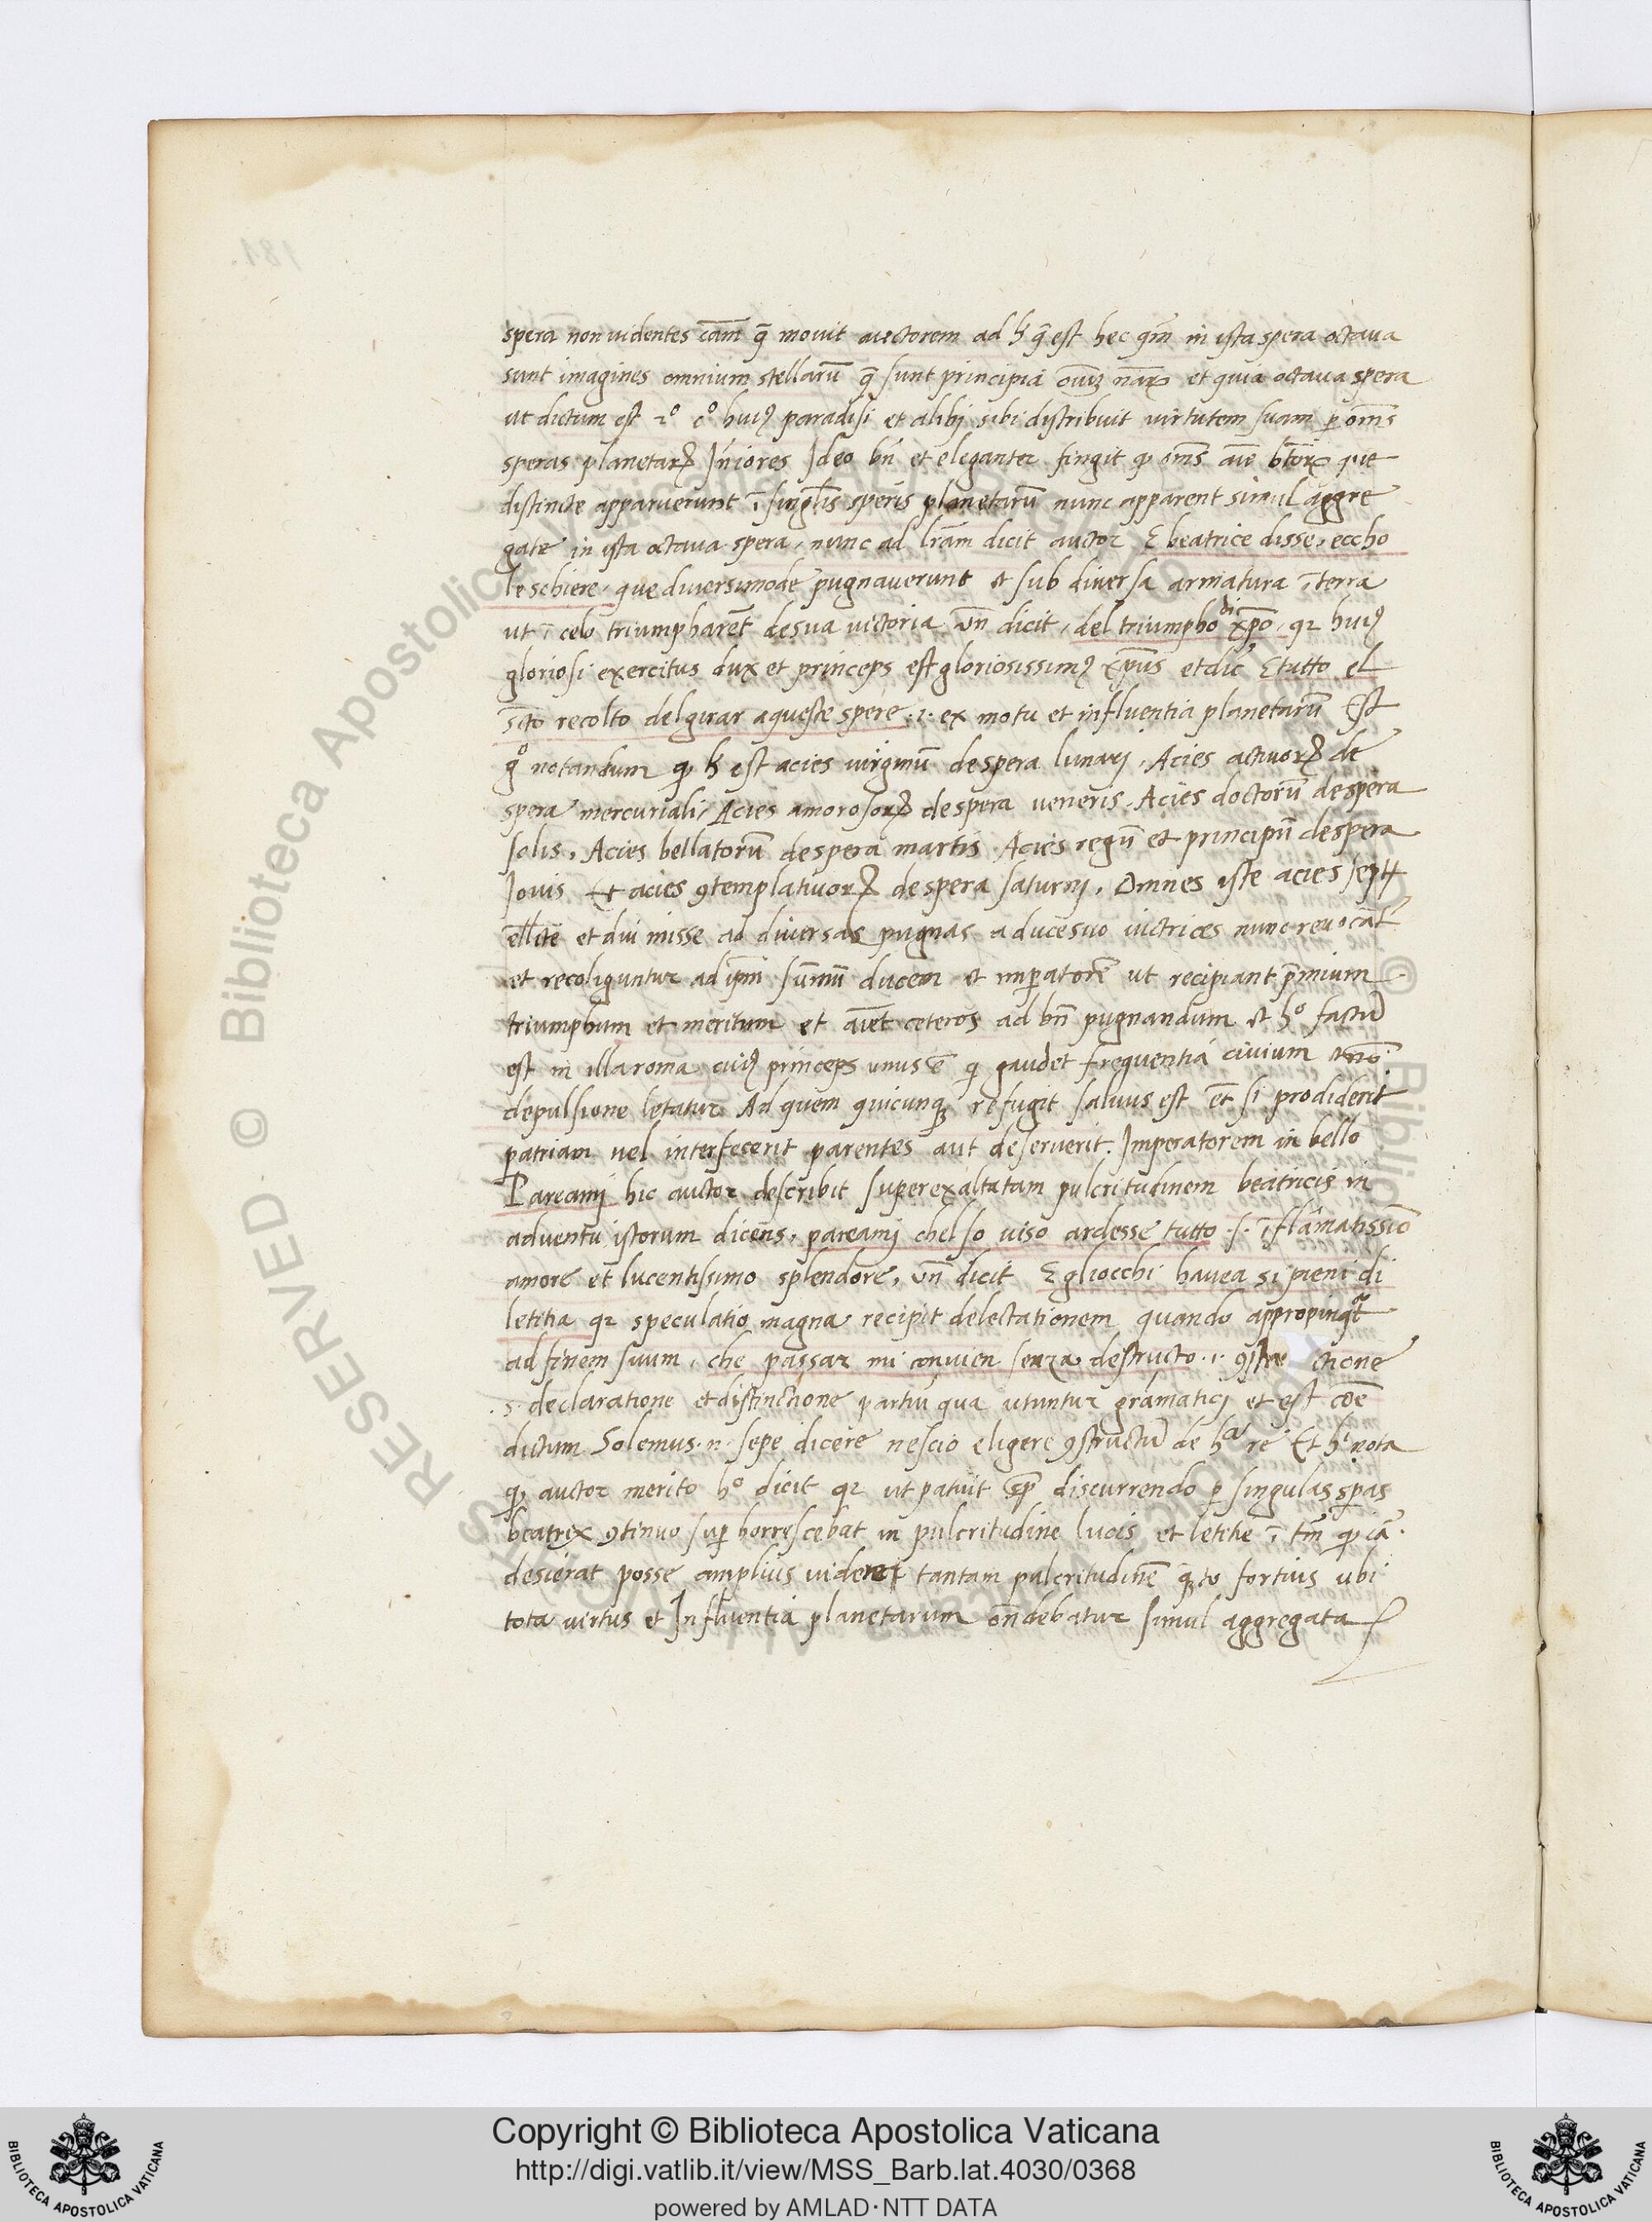 spera non videntes cām q̄ movit auctorem ad h̄ q̄ est hec qm̄ in ista spera octava
sunt imagines omnium stellarū q̄ sunt principia et quia octava spera
ut dictum est 2º cº huiꝰ paradisi et alibj sibi distribuit virtutem suam ꝑ om̄s
speras planetarꝝ Iñiores Ideo bn̄ et eleganter fingit ꝙ om̄s aīe btōrꝝ que
distincte apparuerunt ī singlis speris planetarū nunc apparent simul aggre
gate in ista octava spera, nunc ad lr̄am dicit auctor E beatrice disse, eccho
le schiere, que diversimode pugnaverunt et sub diversa armatura ī terra
ut ī celo triumpharēt de sua victoria un̄ dicit, del triumpho di xp̄o, qꝛ huiꝰ
gloriosi exercitus dux et princeps est gloriosissimꝰ xp̄us et dic̄ E tutto el
recolto del girar aqueste spere .i. ex motu et influentia planetarū Est
gº notandum ꝙ h̄ est acies virginū de spera lunarj, Acies activorꝝ de
spera mercuriali, Acies amorosorꝝ de spera veneris, Acies doctorū de spera
solis, Acies bellatorū de spera martis Acies regū et principū de spera
Iovis Et acies ꝯtemplativorꝝ de spera saturnj, Omnes iste acies
et divi misse ad diversas pugnas a duce suo victrices nunc revocāt
et recoliguntur ad ip̄m sūmū ducem et imꝑatorē ut recipiant p̄mium
triumphum et meritum et ceteros ad bn̄ pugnandum et hº factū
est in illa roma cuiꝰ princeps unus ē qi gaudet frequentia civium et nō
depulsione letatur Ad quem quicunqꝫ refugit salvus est et̄ si prodiderit
patriam vel interfecerit parentes aut deserverit Imperatorem in bello
Pareamj hic auctor describit superexaltatam pulcritudinem beatricis in
adventu istorum dicens, pareamj chel so viso ardesse tutto .s. īflāmatissīo
amore et lucentissimo splendore, un̄ dicit E gliocchi havea si pieni di
letitia qꝛ speculatio magna recipit delectationem quando appropinqat
ad finem suum, che passar mi convien senza destructo .i. ctione
.s. declaratione et distinctione partiū qua utuntur gramaticj et est cōe
dictum Solemus .n. sepe dicere nescio eligere ꝯstructū de ha re Et hi nota
ꝙ auctor merito hº dicit qꝛ ut patuit sp̄ discurrendo ꝑ singulas speras
beatrix ꝯtinuo suꝑ horrescebat in pulcritudine lucis et letitie ī tm̄ ꝙ iā
desierat posse amplius videre tantam pulcritudinē qto fortius ubi
tota vertus et Influentia planetarum on̄debatur simul aggregata
181.
Copyright © Biblioteca Apostolica Vaticana
http://digi.vatlib.it/view/MSS_Barb.lat.4030/0368
powered by AMLAD·NTT DATA
BIBLIOTECA APOSTOLICA VATICANA
BIBLIOTECA APOSTOLICA VATICANA